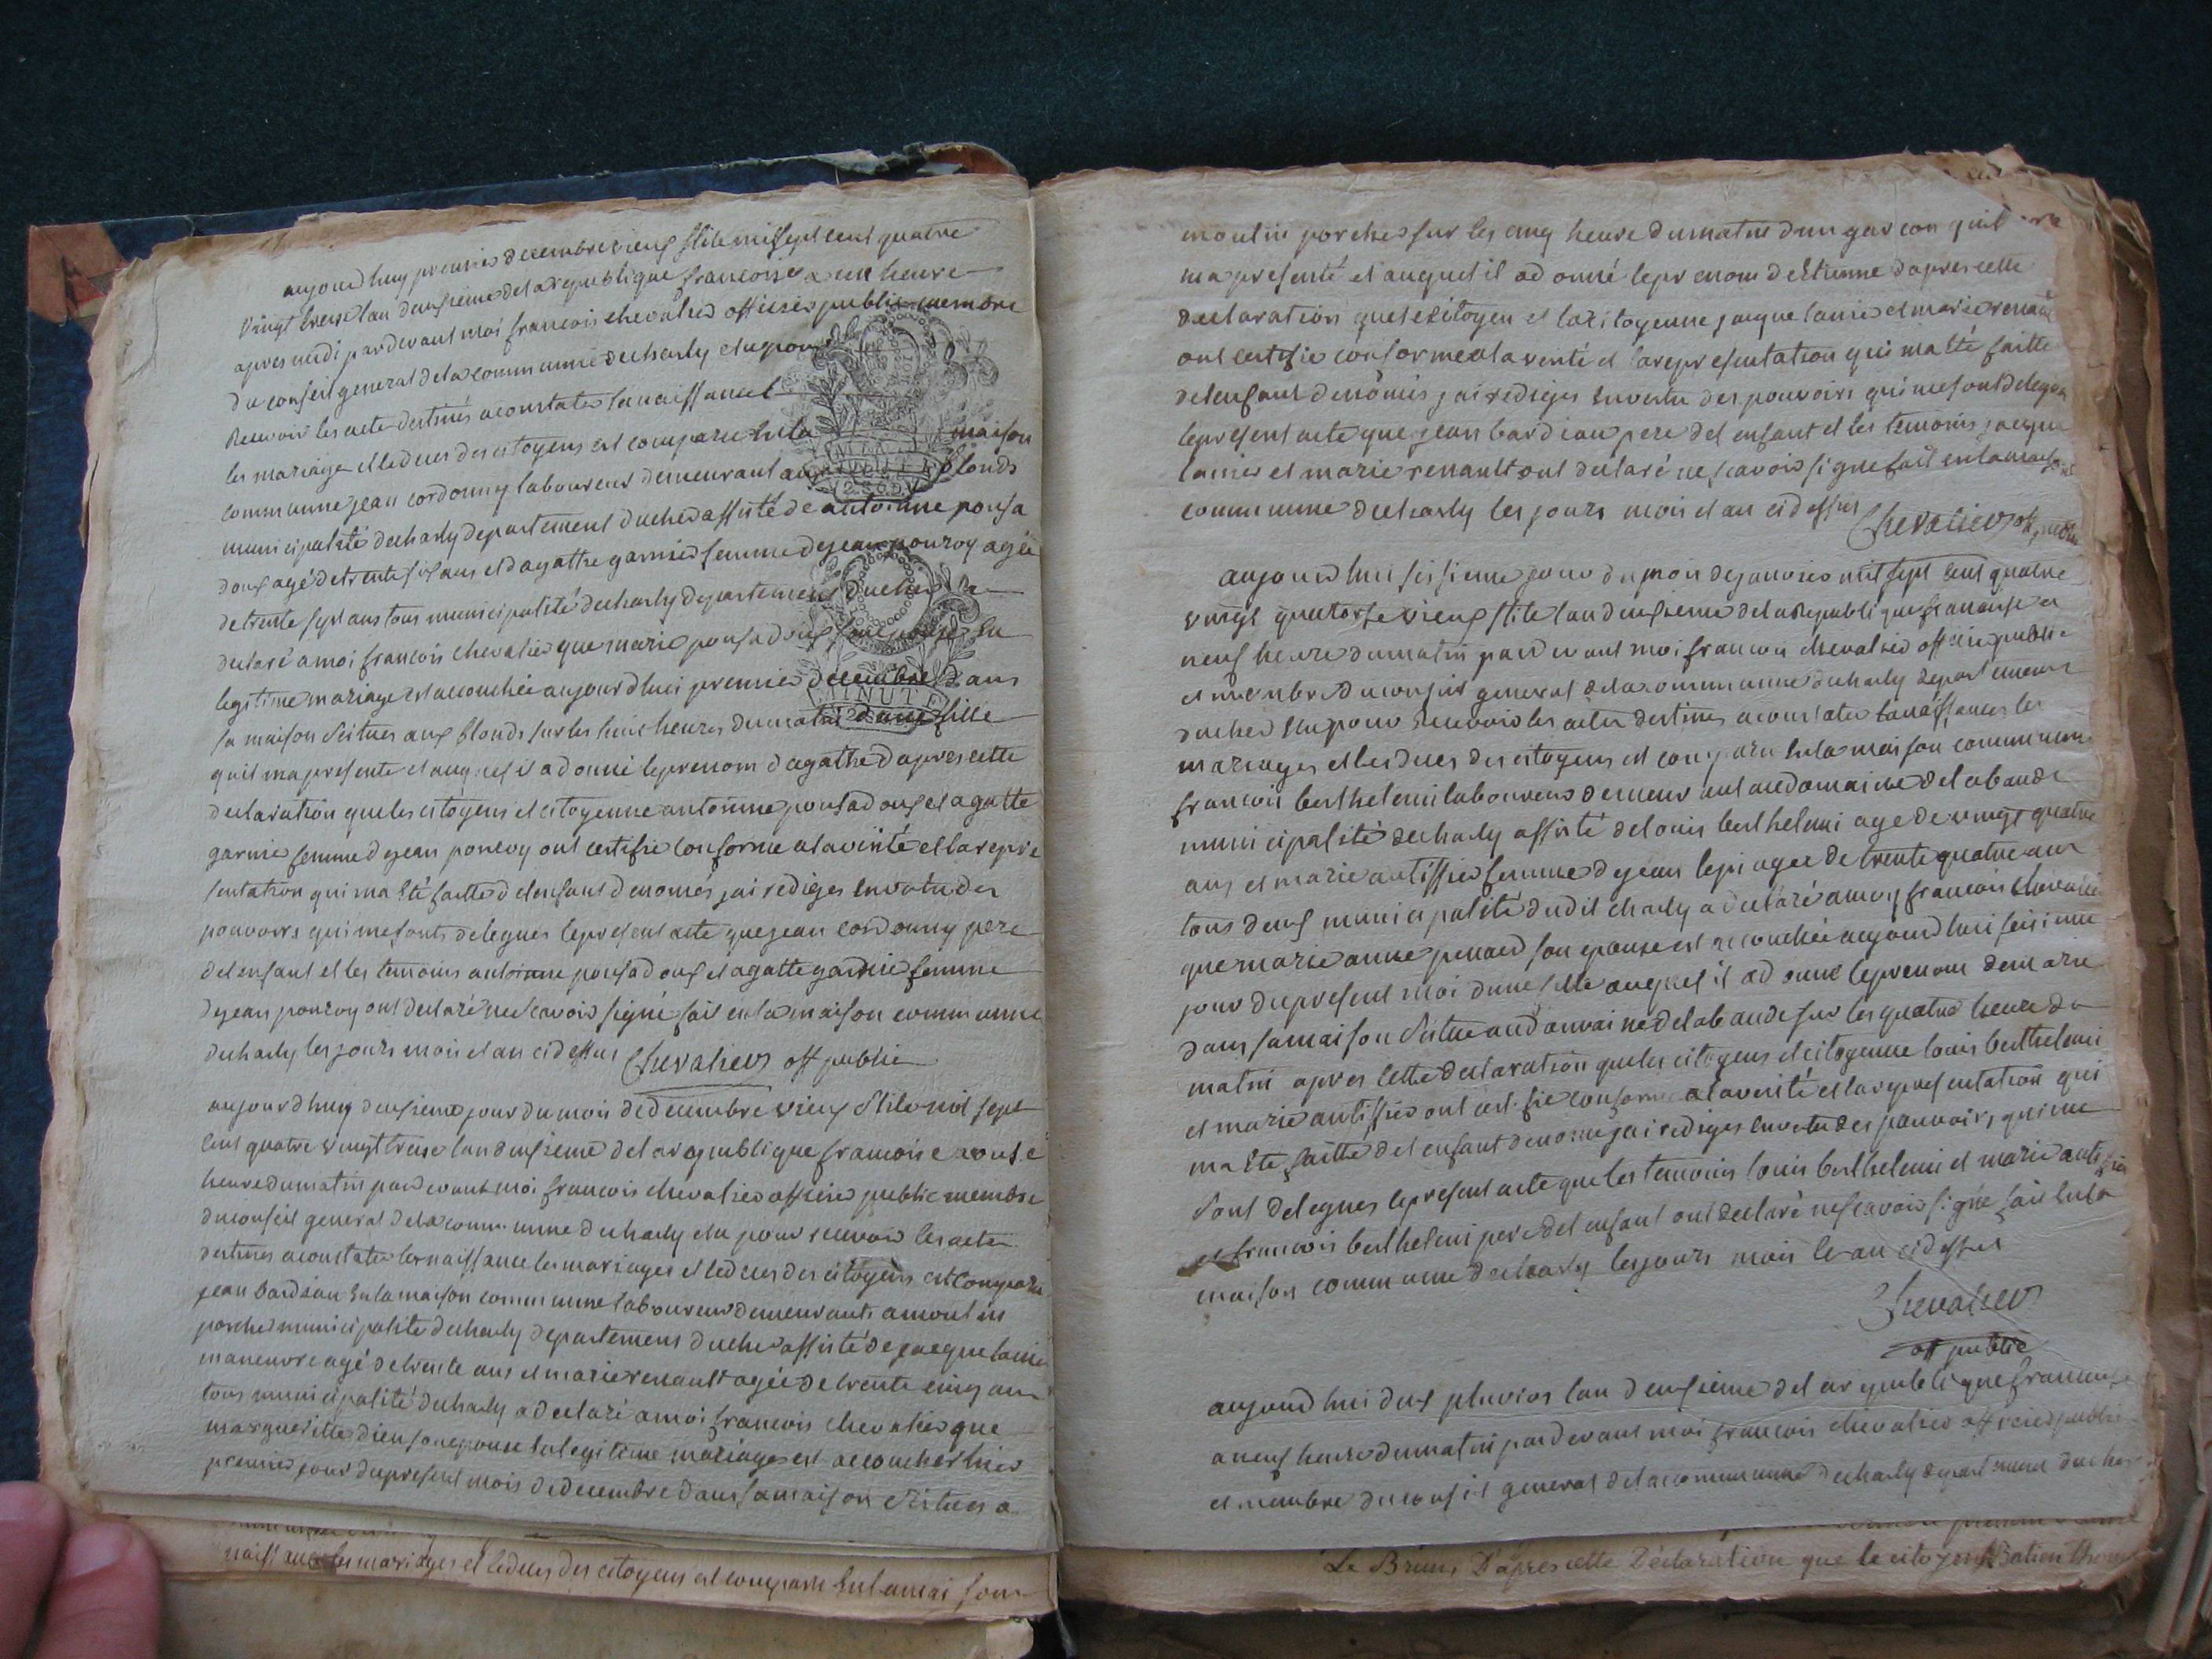 aujourdhuy premier decembre vieux stile mil sept cent quatre
vingt treise lan deuxsieme dela republique francoise a une heure
apres midi pardevant moi francois chevalier officier public membre
du conseil general dela commune de charly elu pour
Recevoir les acte destinés a constater la naissance
les mariage et le deces des citoyens est comparu en la maison
commune jean cordonny laboureur demeurant aux blonds
municipalité de charly departement du cher assisté de antoinne pousa
doux agé de trente six ans et dagathe garnier femme de jean pouroy agée
de trente sept ans tous municipalité de charly departement du cher a
declaré a moi francois chevalier que marie pousadoux son epouse en
legitime mariage est accouchée aujourdhui premier decembre dans
sa maison scitues aux blonds sur les huit heures du matin dune fille
quil ma presente et auquel il a donné le prenom dagathe dapres cette
declaration que les citoyens et citoyenne antoinne pousadoux et agatte
garnie femme de jean pouroy ont certifie conforme ala vérité et la repre
sentation qui ma été faitte de lenfant denomés jai rediges en vertu des
pouvoirs qui me sont delegues le present acte que jean cordonny pere
del enfant et les temoins antoinne pousadoux et agatte garnie femme
de jean pouroy ont declaré ne scavoir signé fait en la maison commune
de charly les jours mois et an cidessus Chevalier off public
aujourdhuy deuxsieme jour du mois de decembre vieux stile mil sept
cent quatre vingt treise lan deuxsieme del a republique francoise a onse
heure du matin pardevant moi francois chevalier officier public membre
du conseil general dela commune de charly elu pour recevoir les acte
destines a constater les naissance les mariages et le deces des citoyens est comparu
jean bardeau en la maison commune laboureur demeurant a moulin
porcher municipalité de charly departement du cher assisté de jacque lainé
maneuvre agé de trente ans et marie renault agée de trente cinq ans
tous municipalité de charly a declaré a moi francois chevalier que
margueritte dieu son epouse en legitime mariage est accouchér hier
premier jour du present mois de decembre dans sa maison scitues a
naissance les mariages et le deces des citoyens est comparu en la mai son
moulin porcher sur les cinq heure du matin dun garcon quil
ma presenté et auquel il a donné le prenom d Etienne dapres cette
declaration que le citoyen et la citoyenne jacque lainé et marie renault
ont certifie conforme a la verité et la representation qui ma été faitte
del enfant denomés jai rediges en vertu des pouvoirs qui me sont delegues
le present acte que jean bardeau pere del enfant et les temoins jacque
lainé et marie renault ont declaré ne scavoir signe fait en la maison
commune de charly les jours mois et an cidessus Chevalier off public
aujourdhui sixsieme jour du mois de janvier mil sept cent quatre
vingt quatorse vieux stile lan deuxsieme dela Republique francoise a
neuf heure du matin pardevant moi francois chevalier officier public
et membre du conseil general dela commune de charly departement
du cher elu pour recevoir les actes destines a constater la naissances les
mariages et les deces des citoyens est comparu en la maison commune
francois berthelemi laboureur demeurant au domaine de labaude
municipalité de charly assisté de louis berthelemi agé de vingt quatre
ans et marie autissier femme de jean lepi agee de trente quatre ans
tous deux municipalité dudit charly a declaré a moy francois chevalier
que marie anne penard son epouse est accouchée aujourdhui sixieme
jour du present moi dune fille auquel il a donné le prenom de marie
dans sa maison scitue au domaine de labaude sur les quatre heure du
matin apres cette declaration que les citoyens et citoyenne louis berthelemi
et marie autissier ont certifie conforme a la verité et la representation qui
ma été faitte del enfant denome jai rediges en vertu des pouvoirs qui me
sont delegues le present acte que les temoins louis berthelemi et marie autissier
et francois berthelemi pere del enfant ont declaré ne scavoir signé fait en la
maison commune de charly les jours mois et an cidessus
Chevalier
off public
aujourdhui deux pluvios lan deuxsieme del a republique francoise
a neuf heure du matin pardevant moi francois chevalier officier public
et membre du conseil general dela commune de charly departement du cher
Le Brun D'apres cette Declaration que le citoyen